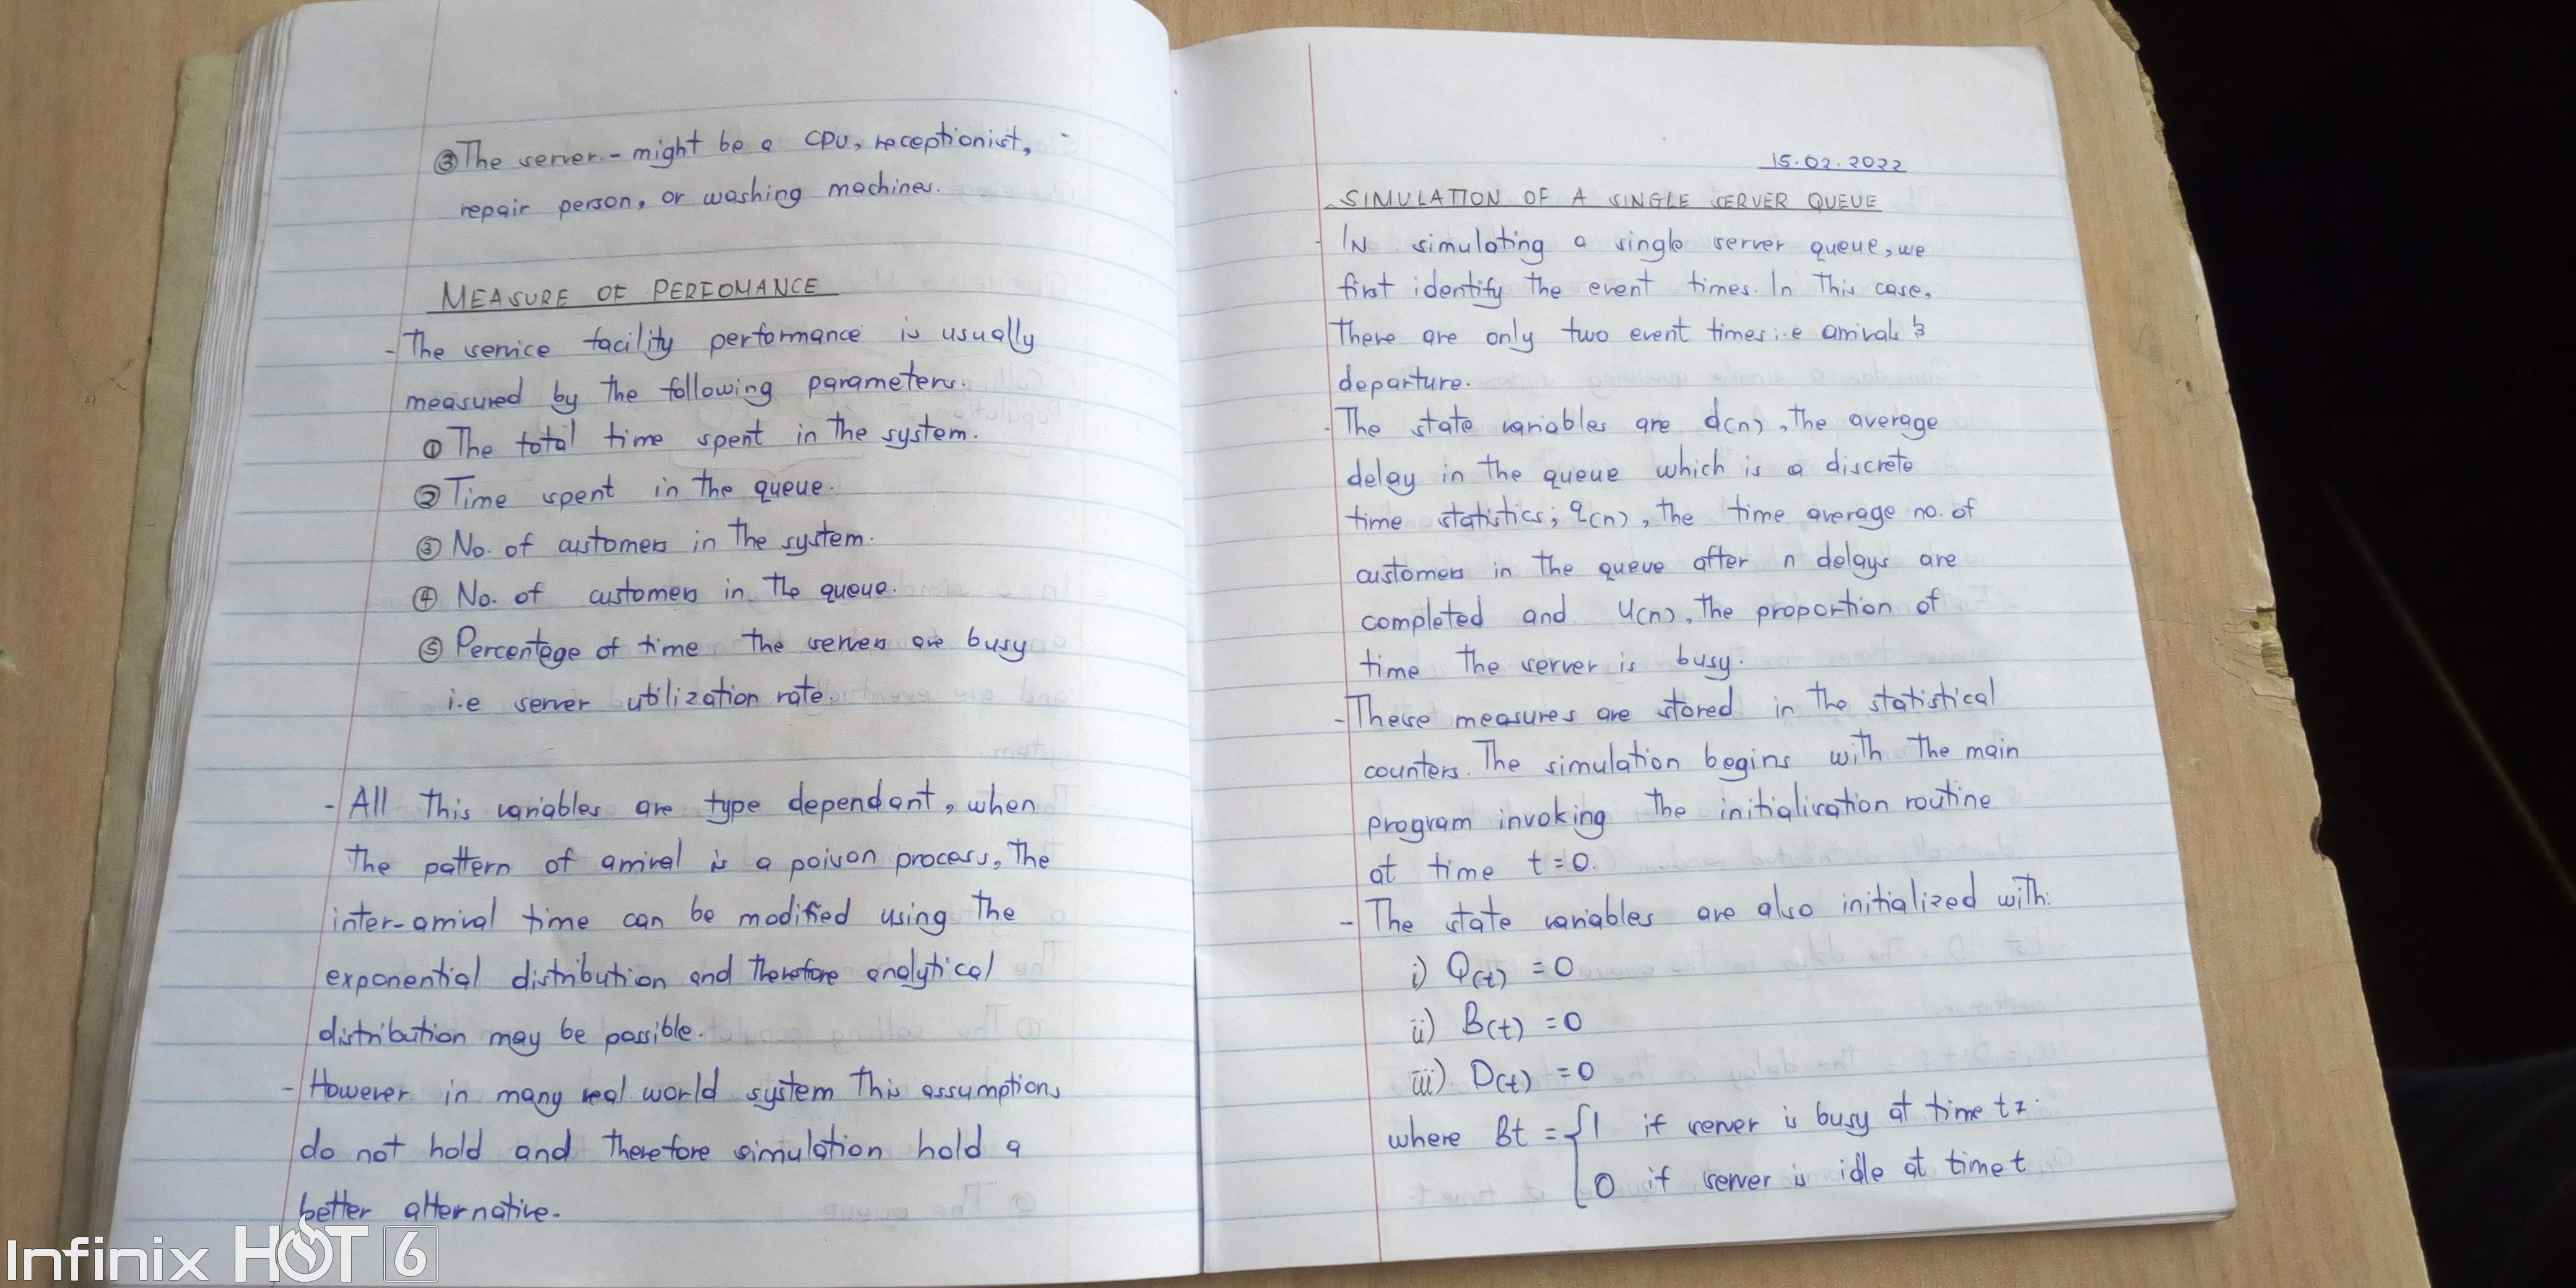 ③ The server - might be a CPU, receptionist,
repair person, or washing machines.
MEASURE OF PERFOMANCE
- The service facility performance is usually
measured by the following parameters.
① The total time spent in the system.
② Time spent in the queue.
③ No. of customers in the system.
④ No. of customers in the queue.
⑤ Percentage of time the servers are busy
i.e server utilization rate
- All this variables are type dependant, when
the pattern of arrival is a poison process, the
inter-arrival time can be modified using the
exponential distribution and therefore analytical
distribution may be possible.
- However in many real world system this assumptions
do not hold and therefore simulation hold a
better alternative.
15.02.2022
SIMULATION OF A SINGLE SERVER QUEUE
- IN simulating a single server queue, we
first identify the event times. In this case,
there are only two event times i.e arrivals &
departure.
- The state variables are d(n), the average
delay in the queue which is a discrete
time statistics; q(n), the time average no. of
customers in the queue after n delays are
completed and u(n), the proportion of
time the server is busy.
- These measures are stored in the statistical
counters. The simulation begins with the main
program invoking the initialisation routine
at time t=0.
- The state variables are also initialized with:
i) Q(t) = 0
ii) B(t) = 0
iii) D(t) = 0
where Bt = { 1 if server is busy at time t
0 if server is idle at time t
Infinix HOT 6